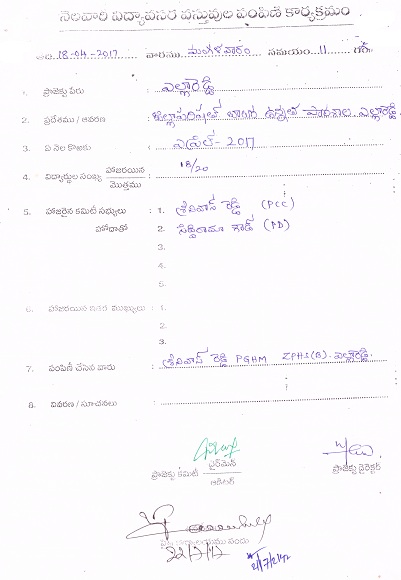 నెలవారి విద్యావసర వస్తువుల పంపిణి కార్యక్రమం
తేది 18-04-2017 వారము మంగళవారం సమయం 11 గం॥
1. ప్రాజెక్టు పేరు : ఎల్లారెడ్డి
2. ప్రదేశము / ఆవరణ : జిల్లాపరిషత్ బాలుర ఉన్నత పాఠశాల ఎల్లారెడ్డి
3. ఏ నెల కొఱకు : ఎప్రిల్ - 2017
4. విద్యార్థుల సంఖ్య హాజరయిన మొత్తము : 18/20
5. హాజరైన కమిటీ సభ్యులు : 1. శ్రీనివాస్ రెడ్డి (PCC)
హోదాతో 2. సిద్దిరామా గౌడ్ (PD)
3.
4.
5.
6. హాజరయిన ఇతర ముఖ్యులు : 1.
2.
3.
7. పంపిణి చేసిన వారు : శ్రీనివాస్ రెడ్డి PGHM ZPHS(B). ఎల్లారెడ్డి.
8. వివరణ / సూచనలు :
ప్రాజెక్టు కమిటీ చైర్మెన్ ఆడిటర్
ప్రాజెక్టు డైరెక్టర్